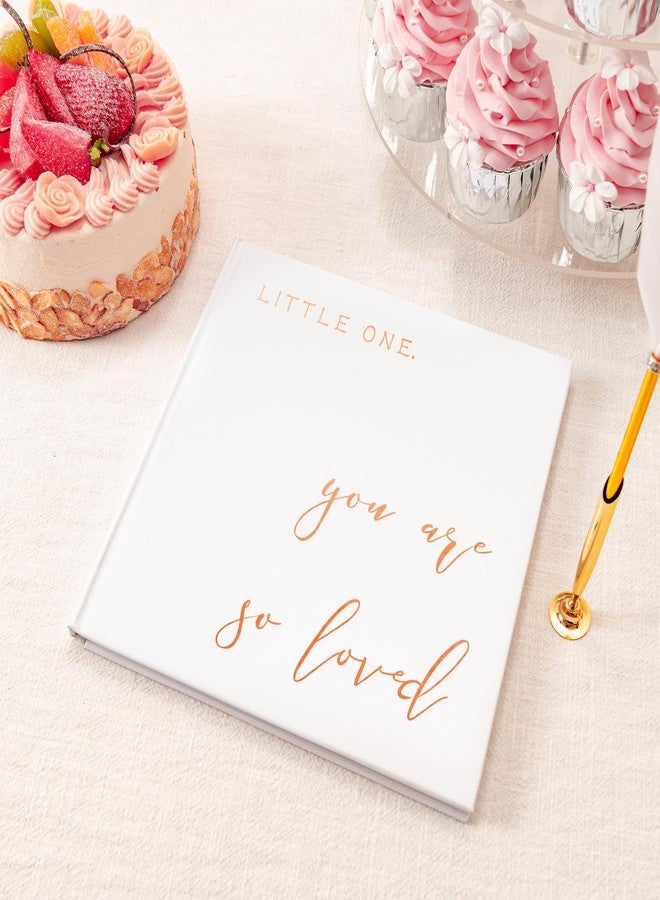 LITTLE ONE.
you are
so loved